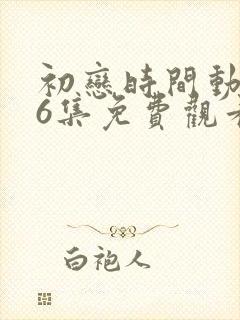 初戀時間動
6集免費觀看
白袍人